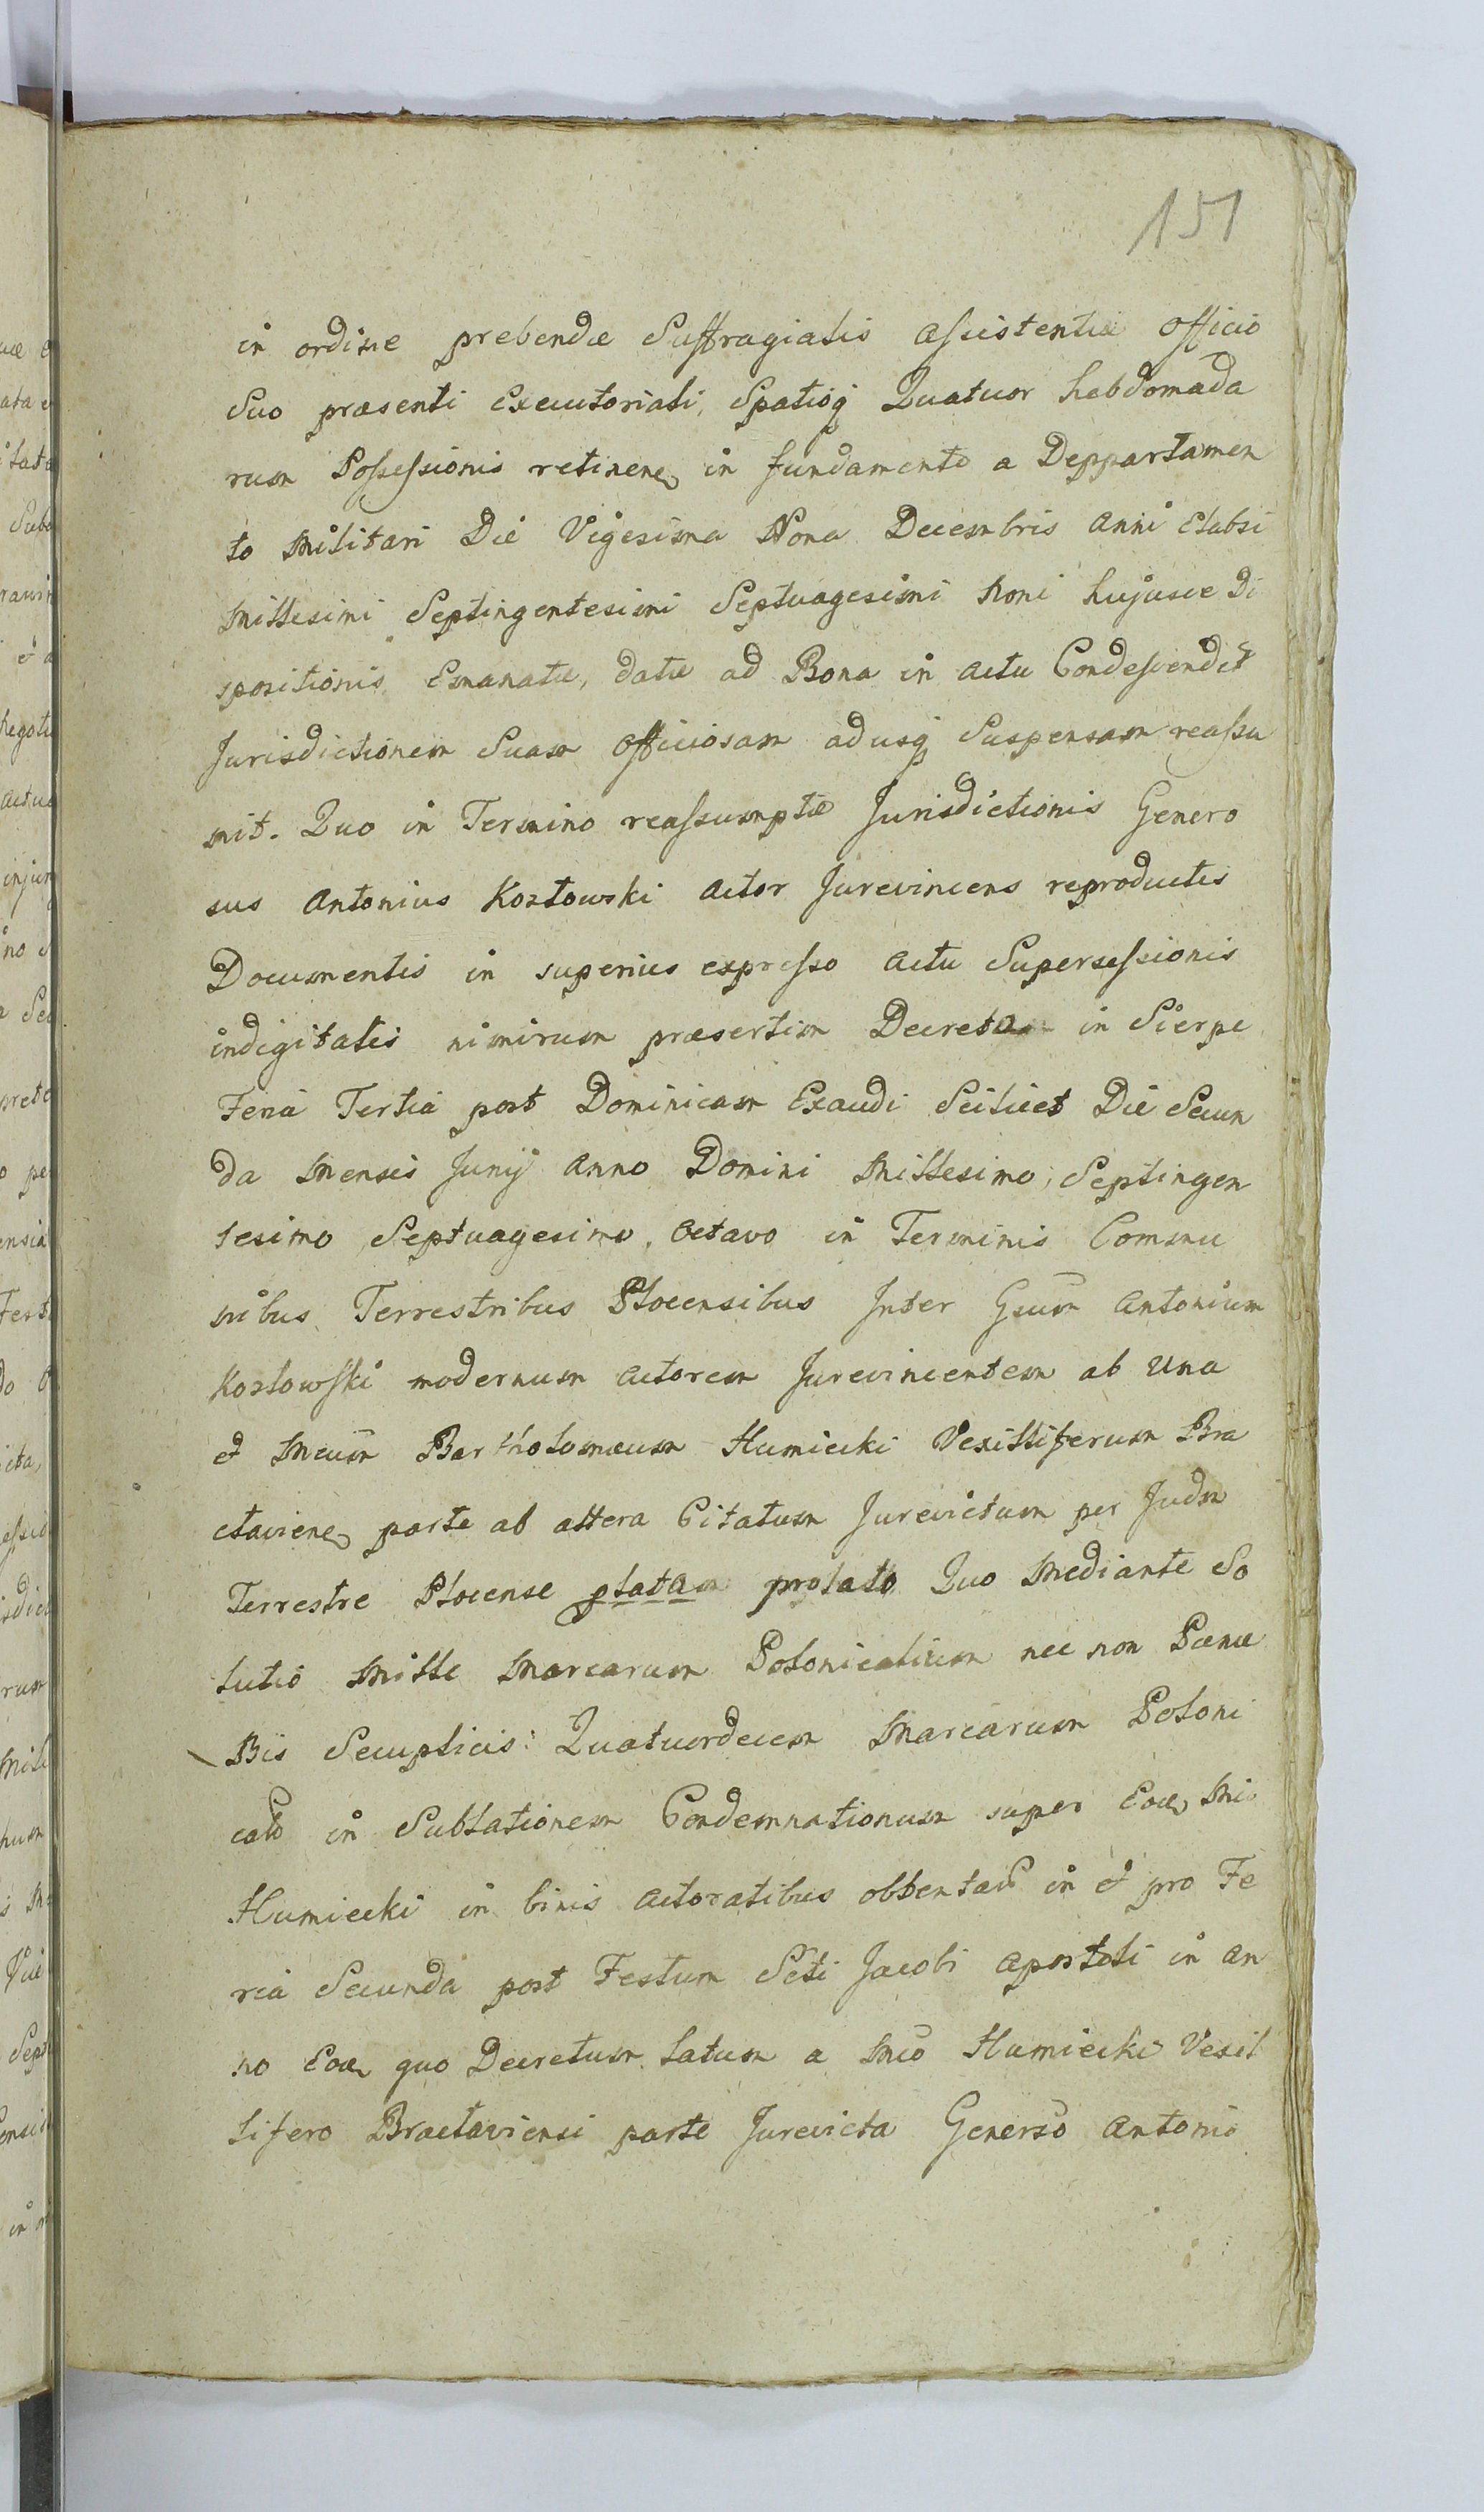 151
in ordine prebendæ Suffragialis assistentiæ Officio
Suo præsenti Executoriali, Spatioq Quatuor hebdomada
rum Possessionis retinen in fundamento a Deppartamen
to Militari Die Vigesima Nona Decembris Anni Elabsi
Millesimi Septingentesimi Septuagesimi Noni hujusce Di
spositionis Emanatæ, datæ ad Bona in actu Condescendit
Jurisdictionem Suam Officiosam adusq Suspensam reassu
mit. Quo in Termino reassumptæ Jurisdictionis Genero
sus Antonius Kozłowski Actor Jurevincens reproductis
Documentis in superius expresso Actu Supersessionis
indigitatis nimirum præsertim Decreto in Sierpc
Feria Tertia post Dominicam Exaudi Scilicet Die Secun
da Mensis Junij Anno Domini Millesimo, Septingen
tesimo Septuagesimo, Octavo in Terminis Commu
nibus Terrestribus Plocensibus Inter Gsum Antonium
Kozłowski modernum Actorem Jurevincentem ab Una
et Mcum Bartholomæum Humiecki Vexilliferum Bra
claviens parte ab altera Citatum Jurevictum per Judm
Terrestre Plocense prolato Quo Mediante So
lutio Mille Marcarum Polonicalium nec non Pænæ
Bis Secuplicis: Quatuordecem Marcarum Poloni
in Sublationem Condemnationum super Eod Mco
Humiecki in binis Actoratibus in et pro Fe
ria Secunda post Festum Scti Jacobi Apostoli in An
no Eod quo Decretum latum a Mco Humiecki Vexil
lifero Braclaviensi parte Jurevicta Generso Antonio